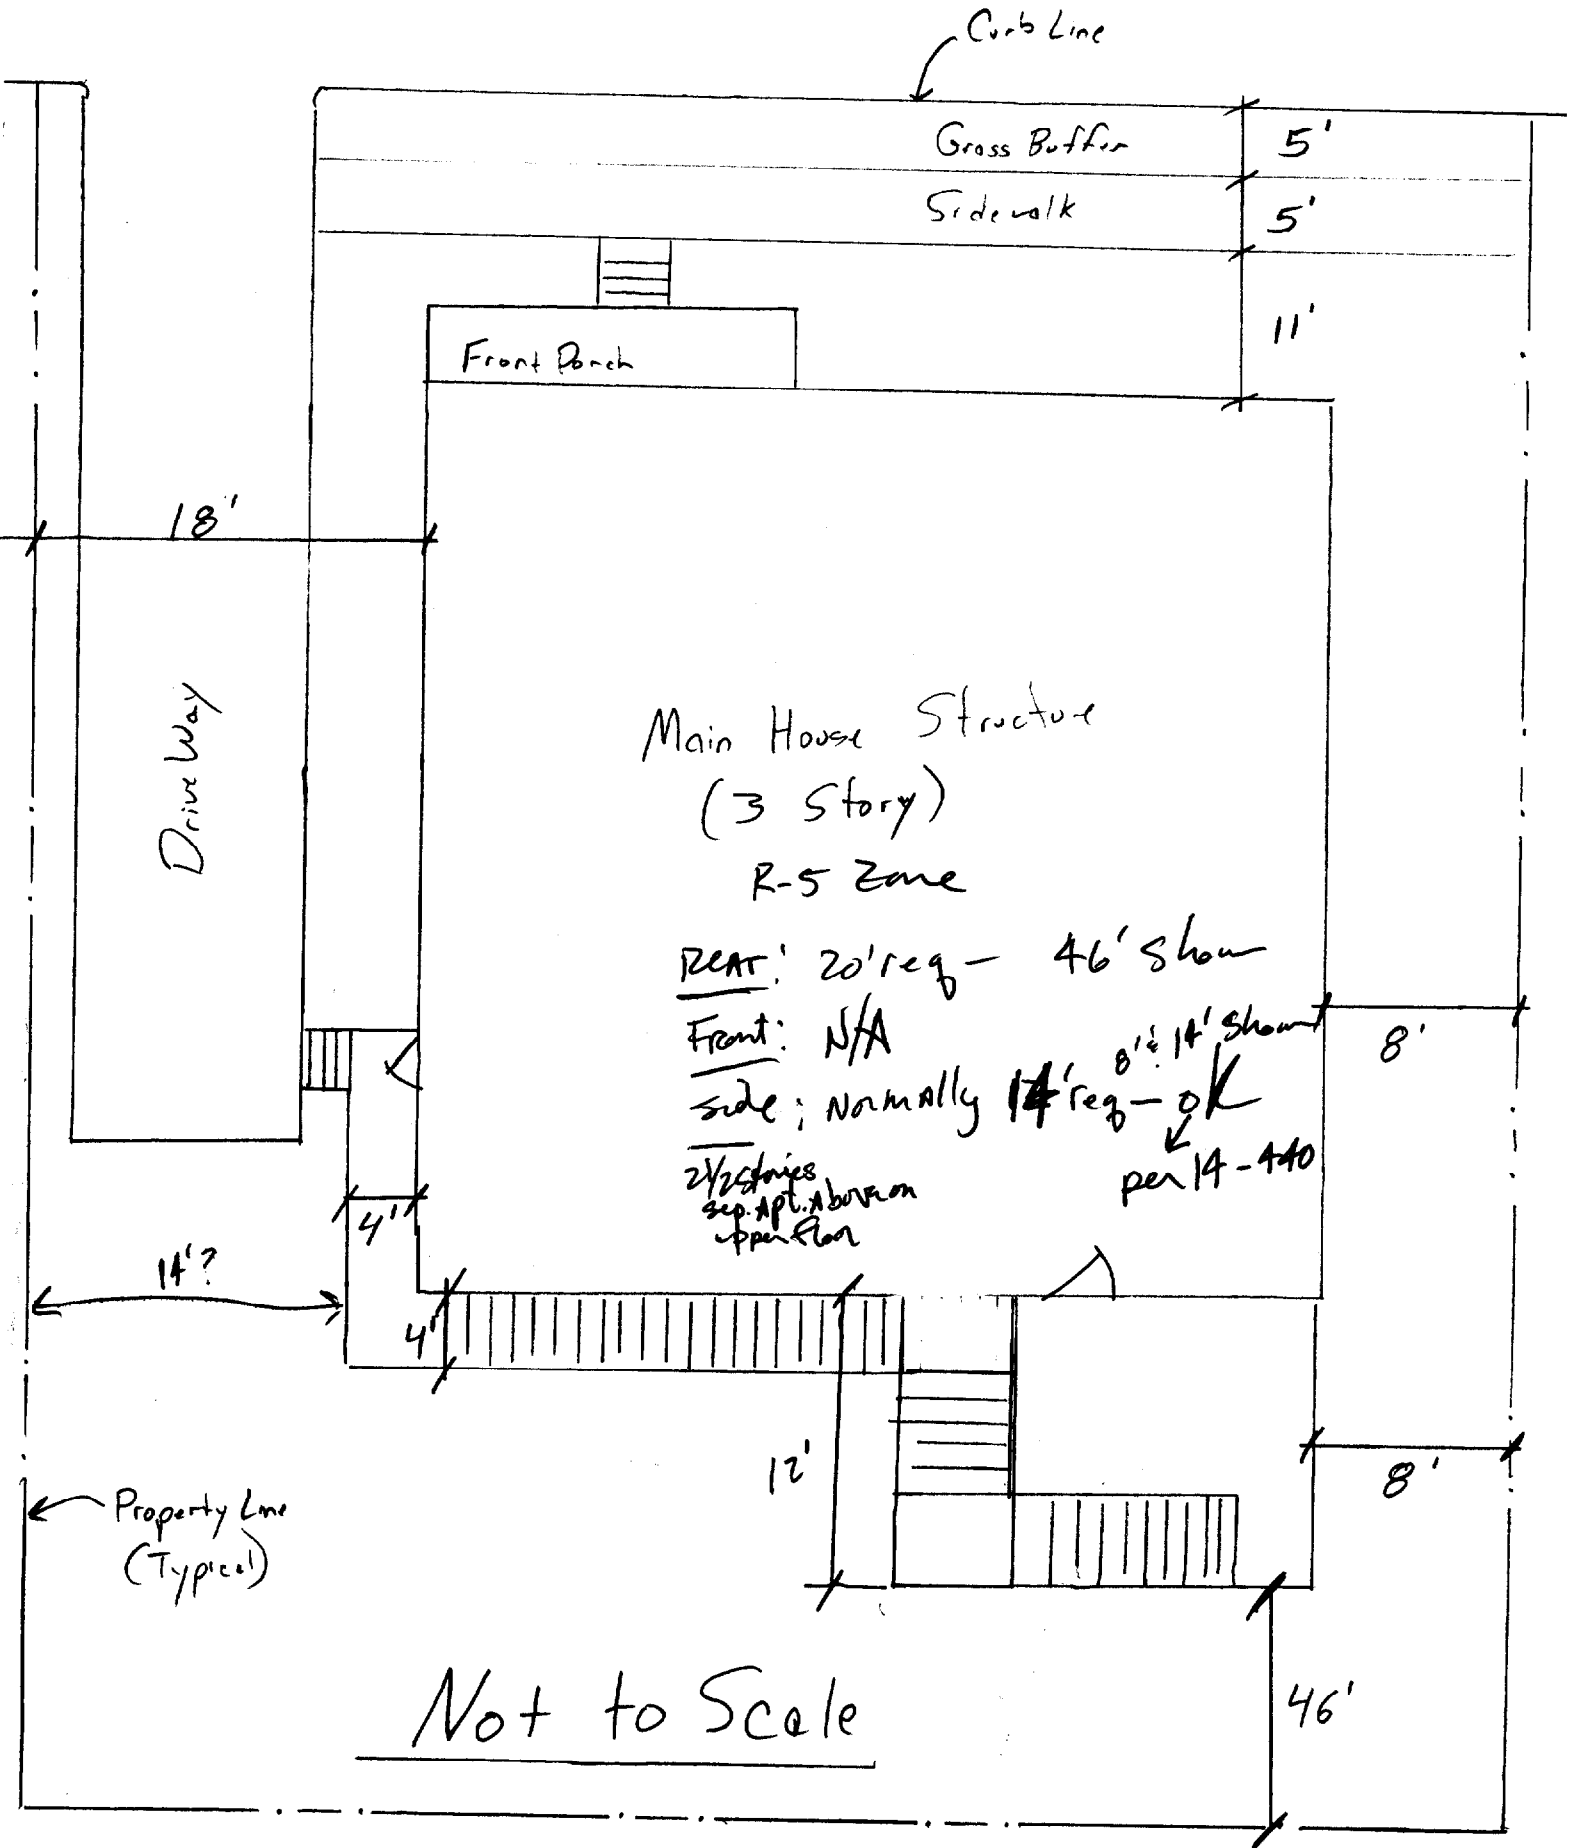 Curb Line
Grass Buffer
5'
Sidewalk
5'
11'
Front Porch
18'
DriveWay
Main House Structure
(3 Story)
R-5 Zone
REAR: 20' req - 46' Shown
Front: N/A
8' & 14' Shown
Side: Normally 14' req - OK
per 14-440
2 1/2 stories
sep. Apt. Above on
upper floor
8'
4'
14'?
4'
12'
8'
Property Line
(Typical)
Not to Scale
46'